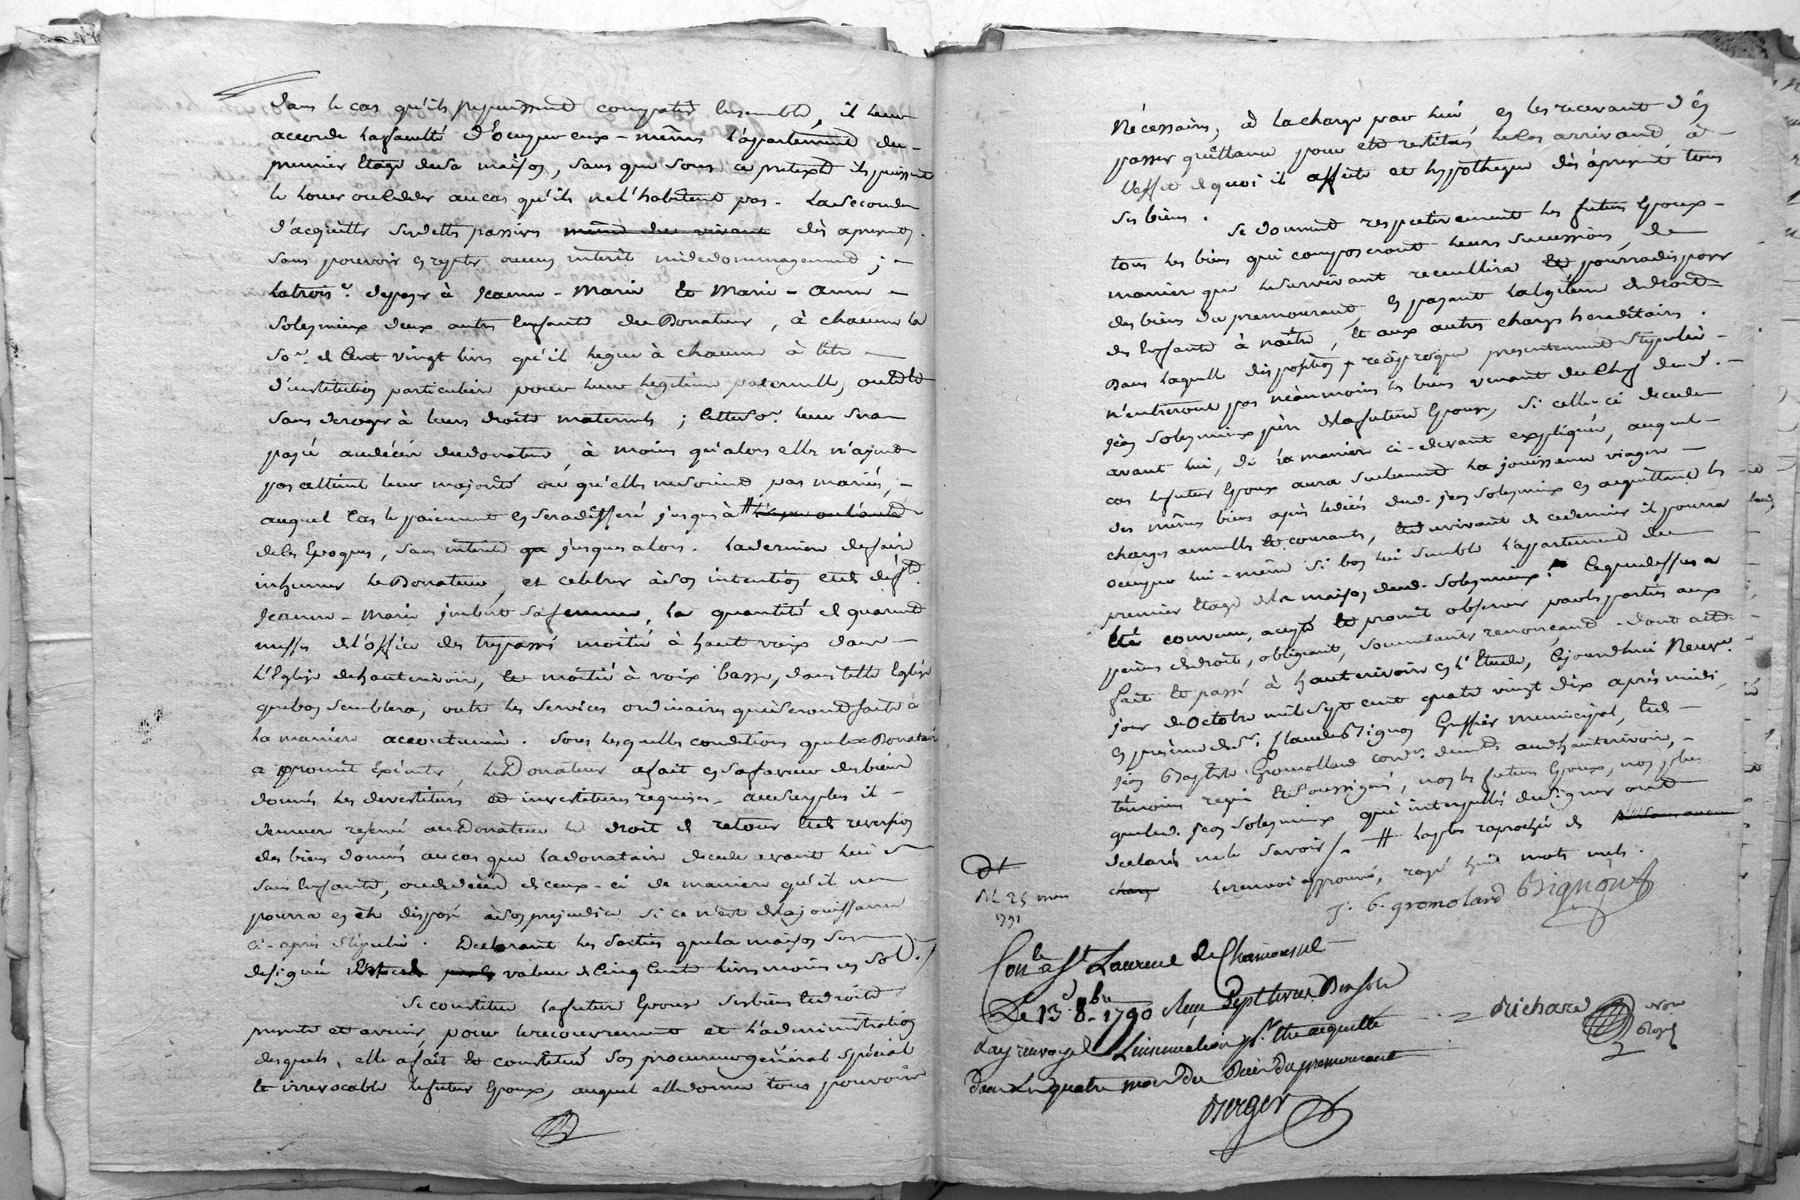 dans le cas qu'ils ne puissent compatir ensemble, il leur
accorde la faculté d'ocuper eux-mêmes l'apartement du
premier étage de sa maison, sans que sous ce pretexte ils puissent
le louer ou céder au cas qu'ils ne l'habitent pas. La seconde
d'acquitter ses dettes passives même du vivant dès apresent.
sans pouvoir en repeter aucun interet ni dedommagement;
la trois.e de payer à Jeanne-Marie et Marie-Anne
Soleymieux deux autres enfants du Donateur, à chacune la
so.e de cent vingt livres qu'il lègue à chacune à titre
d'institution particulière pour leur legitime paternelle, outre et
sans deroger à leurs droits maternels; cette so.e leur sera
payée au décès du donateur, à moins qu'alors elles n'ayent
pas atteint leur majorité ou qu'elles ne soient pas mariées,
auquel cas le paiement en sera différé jusqu'à #
de ces époques, sans interet jusques alors. La derniere de faire
inhumer le Donateur, et celebrer à son intention et de def.te
Jeanne-Marie Imbert sa femme, la quantité de quarante
messes de l'office des trepassés moitié à haute voix dans
l'Eglise de hauterivoire, et moitié à voix basse, dans telle Eglise
que bon semblera, outre les services ordinaires qui seront faits à
la maniere accoutumée. Sous lesquelles conditions que la Donataire
a promit exécuter, le Donateur a fait en sa faveur des biens
donnés les devestitures et investitures requises. Au surplus il
demeure reservé au Donateur le droit de retour et de reversion
des biens donnés au cas que la donataire decede avant lui
sans enfants, ou au décès de ceux-ci de maniere qu'il ne
pourra en être disposé à son prejudice si ce n'est de la jouissance
ci-après stipulée. Declarant les parties que la maison sus
designée est de valeur de cinq cents livres moins un sol.
Se constitue la future Epouse ses biens et droits
presents et avenir, pour le recouvrement et l'administration
desquels, elle a fait et constitué son procureur général spécial
et irrevocable le futur Epoux, auquel elle donne tous pouvoirs
nécessaires, à la charge par lui en les recevant d'en
passer quittance pour etre restitués le cas arrivant, à
l'effet de quoi il affecte et hypotheque dès àpresent tous
ses biens.
Se donnent respectivement les futurs Epoux
tous les biens qui composeront leurs successions, de
maniere que le survivant recueillira et pourra disposer
des biens du premourant, en payant la legitime de droit
des Enfants à naître, et aux autres charges hereditaires.
Dans laquelle disposition reciproque presentement stipulée
n'entreront pas néanmoins les biens venant du chef dud.
Jean Soleymieux père de la future Epouse, si celle-ci decede
avant lui, de la maniere ci-devant expliquée, auquel
cas le futur Epoux aura seulement la jouissance viagere
des mêmes biens après le décès dud. Jean Soleymieux en acquittant les
charges annuelles et courantes, et du vivant de ce dernier il pourra
occuper lui-même si bon lui semble l'appartement du
premier étage de la maison dud. Soleymieux. Ce que dessus a
été convenu, accepté et promit observer par les parties aux
peines de droit, obligeant, soumettant, renonçant. Dont acte
fait et passé à hauterivoire en l'Etude, cejourd'hui neuv.e
jour d'Octobre mil sept cent quatre vingt dix après midi,
en présence de S.r Claude Bignon Greffier municipal, et de
Jean Baptiste Gromollard cord.er demts. aud. hauterivoire,
témoins requis et soussignés, non les futurs Epoux, non plus
que led. Jean Soleymieux qui interpellés de signer ont
declarés ne le savoir /. # la plus raprochée de
le renvoi approuvé, rayé huit mots nuls.
J. B. gromolard Bignon
Con.lé à St Laurent de Chamousset
Le 13 8.bre 1790 Reçu sept livres dix sols
Berger
Richard